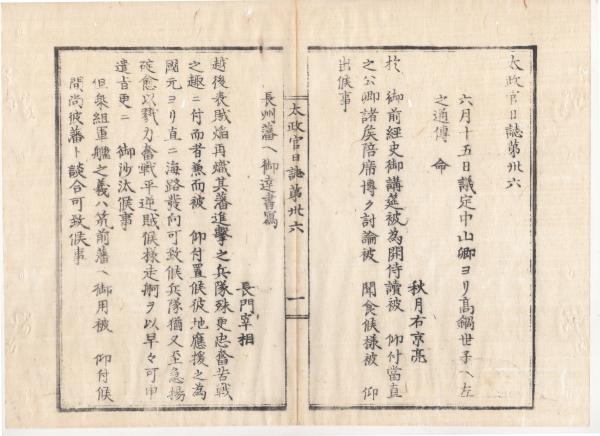 太政官日誌第卅六
六月十五日議定中山卿ヨリ高鍋世子ヘ左
之通傳 命
秋月右京亮
於 御前經史御講筵被為開侍讀被 仰付當直
之公卿諸矦陪席博ク討論被 聞食候様被 仰
出候事
太政官日誌第卅六 一
長州藩ヘ御達書寫
長門宰相
越後表賊焔再熾其藩進擊之兵隊殊更忠奮苦戰
之趣ニ付而者兼而被 仰付置候彼地應援之為
國元ヨリ直ニ海路發向可致候兵隊猶又至急揚
碇愈以戮力奮戰平逆賊候様走舸ヲ以早々可申
遣旨更ニ 御沙汰候事
但乗組軍艦之義ハ筑前藩ヘ御用被 仰付候
間尚彼藩ト談合可致候事